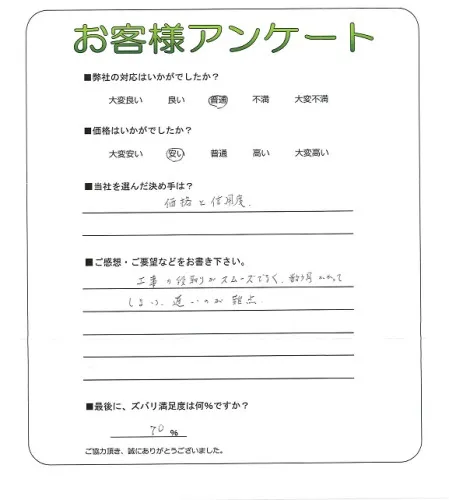 お客様アンケート
■弊社の対応はいかがでしたか?
大変良い 良い 普通 不満 大変不満
■価格はいかがでしたか?
大変安い 安い 普通 高い 大変高い
■当社を選んだ決め手は?
価格と信用度.
■ご感想・ご要望などをお書き下さい。
工事の段取りがスムーズでなく、数ヶ月かかって
しまい、遅いのが難点.
■最後に、ズバリ満足度は何%ですか?
70 %
ご協力頂き、誠にありがとうございました。